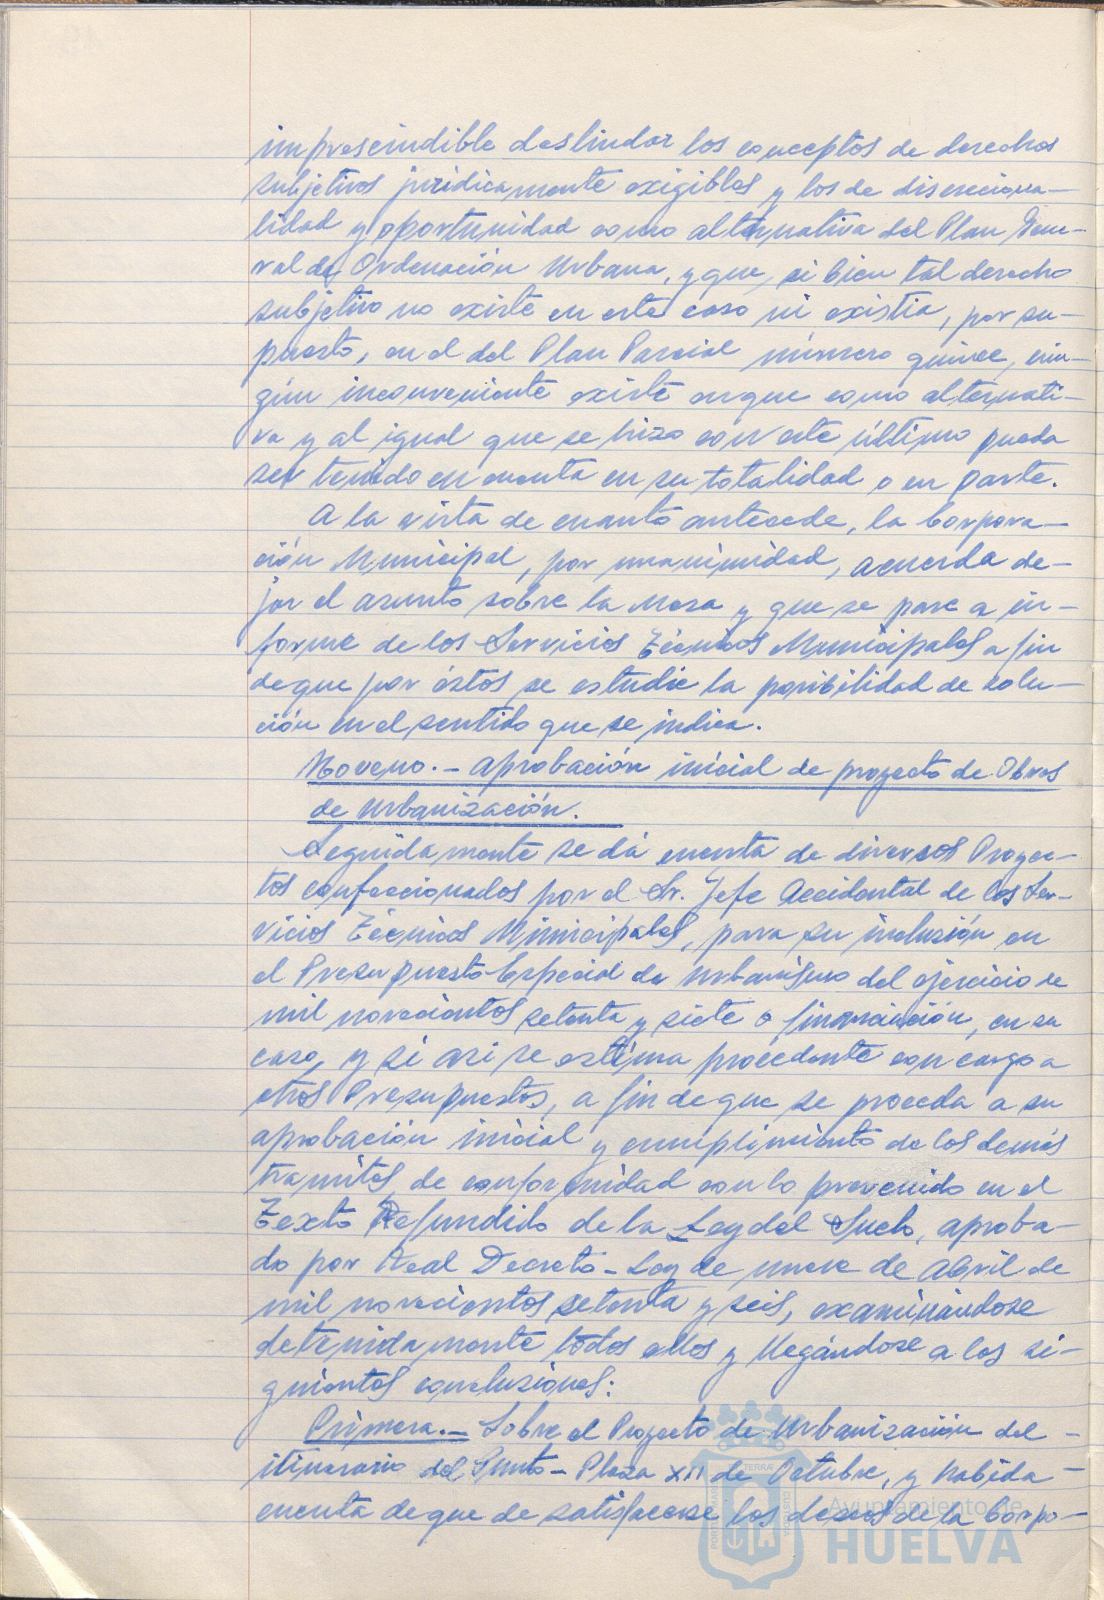 imprescindible deslindar los conceptos de derechos
subjetivos jurídicamente exigibles y los de disereciona-
lidad y oportunidad como alternativa del Plan Gene-
ral de Ordenación Urbana, y que, si bien tal derecho
subjetivo no existe en este caso ni existia, por su-
puesto, en el del Plan Parcial número quince, nin-
gún inconveniente existe en que como alternati-
va y al igual que se hizo con este último pueda
ser tenido en cuenta en su totalidad o en parte.
A la vista de cuanto antecede, la Corpora-
ción Municipal, por unanimidad, acuerda de-
jar el asunto sobre la Mesa y que se pase a in-
forme de los Servicios Técnicos Municipales a fin
de que por éstos se estudie la posibilidad de solu-
ción en el sentido que se indica.
Noveno.- Aprobación inicial de proyecto de Obras
de Urbanización.
Seguidamente se dá cuenta de diversos Proyec-
tos confeccionados por el Sr. Jefe Accidental de los Ser-
vicios Técnicos Municipales, para su inclusión en
el Presupuesto Especial de Urbanismo del ejercicio de
mil novecientos setenta y siete o financiación, en su
caso, y si asi se estima procedente con cargo a
otros Presupuestos, a fin de que se proceda a su
aprobación inicial y cumplimiento de los demás
tramites de conformidad con lo prevenido en el
Texto Refundido de la Ley del Suelo, aproba-
do por Real Decreto-Ley de nueve de Abril de
mil novecientos setenta y seis, examinándose
detenidamente todos ellos y llegándose a las si-
guientes conclusiones:
Primera.- Sobre el Proyecto de Urbanización del -
itinerario del Punto - Plaza XII de Octubre, y habida -
cuenta de que de satisfacerse los deseos de la Corpo-
Ayuntamiento de
HUELVA